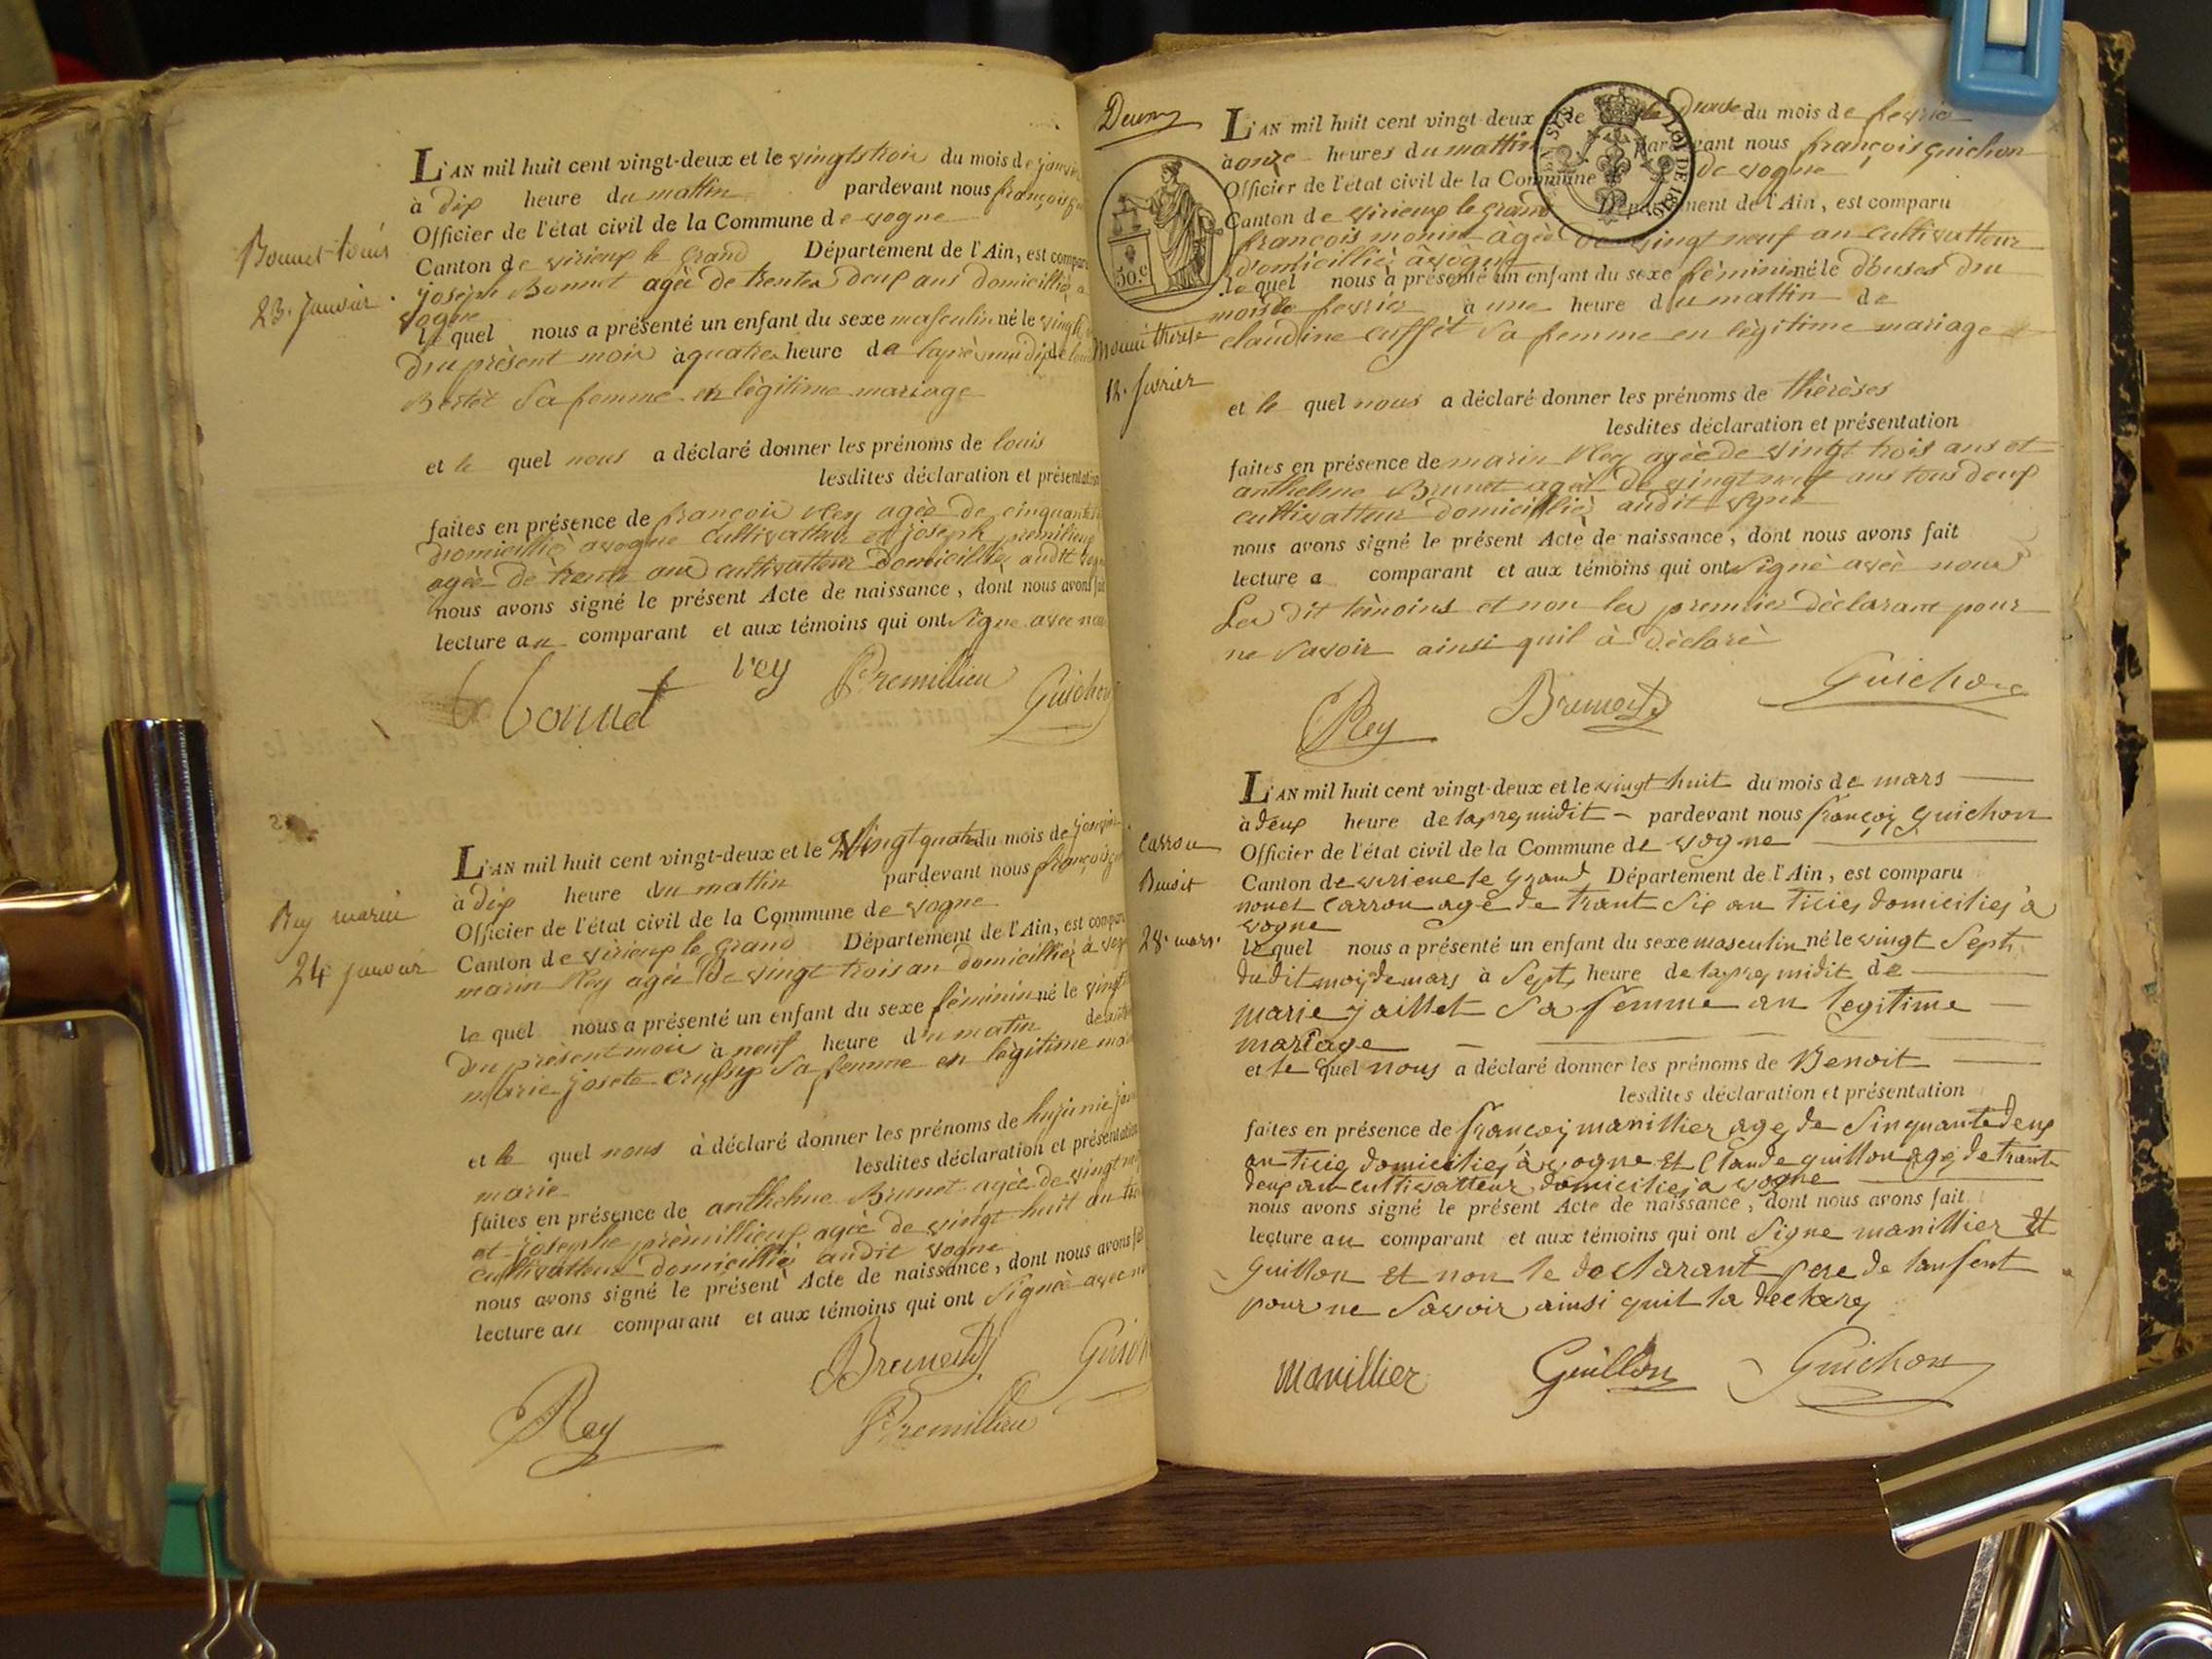 Bonnet Louis
23. Janvier.
L'AN mil huit cent vingt-deux et le vingtstrois du mois de janvie
à dix heure du mattin pardevant nous françois
Officier de l'état civil de la Commune de vogne
Canton de virieux le Grand Département de l'Ain, est compar
joseph Bonnet agée de trentes deux ans domicilliés a
vogne
le quel nous a présenté un enfant du sexe masculin né le vingt
du présent mois à quatre heure de laprès midi de
sa femme en lègitime mariage
et le quel nous a déclaré donner les prénoms de louis
lesdites déclaration et présentation
faites en présence de françois Rey agée de cinquante
domicilliè a vogne cultivatteur et joseph premilieux
agée de trente ans cultivatteur domicilliés audit vogne
nous avons signé le présent Acte de naissance, dont nous avons fait
lecture au comparant et aux témoins qui ont Signe avec nous
bonnet rey Premillieu Guichon
Rey marie
24 janvier
L'AN mil huit cent vingt-deux et le Vingt quatre du mois de janvie
à dix heure du mattin pardevant nous françois
Officier de l'état civil de la Commune de vogne
Canton de virieux le Grand Département de l'Ain, est compar
marin Rey agée de vingt trois an domicilliés à vog
le quel nous a présenté un enfant du sexe féminin né le vingt
du présent mois à neuf heure du matin de
marie josete sa femme en lègitime ma
et le quel nous à déclaré donner les prénoms de
lesdites déclaration et présentation
marie
faites en présence de anthelme Brunet agée de vingt
et josephe prémillieux agée de vingt huit an
cultivatteur domicilliés audit vogne
nous avons signé le présent Acte de naissance, dont nous avons fait
lecture au comparant et aux témoins qui ont Signée avec
Brunet Guich
Rey Premillieu
TIMBRE LOI DE 1816
50.c
Monin therese
12. fevrier
L'AN mil huit cent vingt-deux et le Douse du mois de fevrie
à onze heures du mattin pardevant nous françois guichon
Officier de l'état civil de la Commune de vogne
Canton de virieux le grand Département de l'Ain, est comparu
françois monin agée de vingt neuf an cultivatteur
domicilliés à vogne
le quel nous a présenté un enfant du sexe féminin né le douses du
mois de fevrier à une heure du mattin de
claudine cuffet sa femme en lègitime mariage
et le quel nous a déclaré donner les prénoms de thérèses
lesdites déclaration et présentation
faites en présence de marin Rey agée de vingt trois ans et
anthelme Brunet agée de vingt neuf ans tous deux
cultivatteur domicilliés audit vogne
nous avons signé le présent Acte de naissance, dont nous avons fait
lecture a comparant et aux témoins qui ont Signé avèc nous
Les dit témoins et non le premier déclarant pour
ne savoir ainsi quil à déclaré
Rey Brunet Guichon
Carron
Benoit
28. mars.
L'AN mil huit cent vingt-deux et le vingt huit du mois de mars
à deux heure de lapres midit pardevant nous françois guichon
Officier de l'état civil de la Commune de vogne
Canton de virieue le grand Département de l'Ain, est comparu
nouel Carron age de trant six an ticies domicilies à
vogne
le quel nous a présenté un enfant du sexe masculin né le vingt Sept
dudit mois de mars à Sept heure de lapres midit de
marie jaillet sa femme an legitime
mariage
et le quel nous a déclaré donner les prénoms de Benoit
lesdites déclaration et présentation
faites en présence de françois manillier age de Sinquante deux
an ticie domicilies à vogne et Claude guillon age de trant
deux an cultivatteur domicilies a vogne
nous avons signé le présent Acte de naissance, dont nous avons fait
lecture au comparant et aux témoins qui ont Signe manillier et
guillon et non le declarant pere de lanfent
pour ne Savoir ainsi quil la declare
Manillier Guillon Guichon